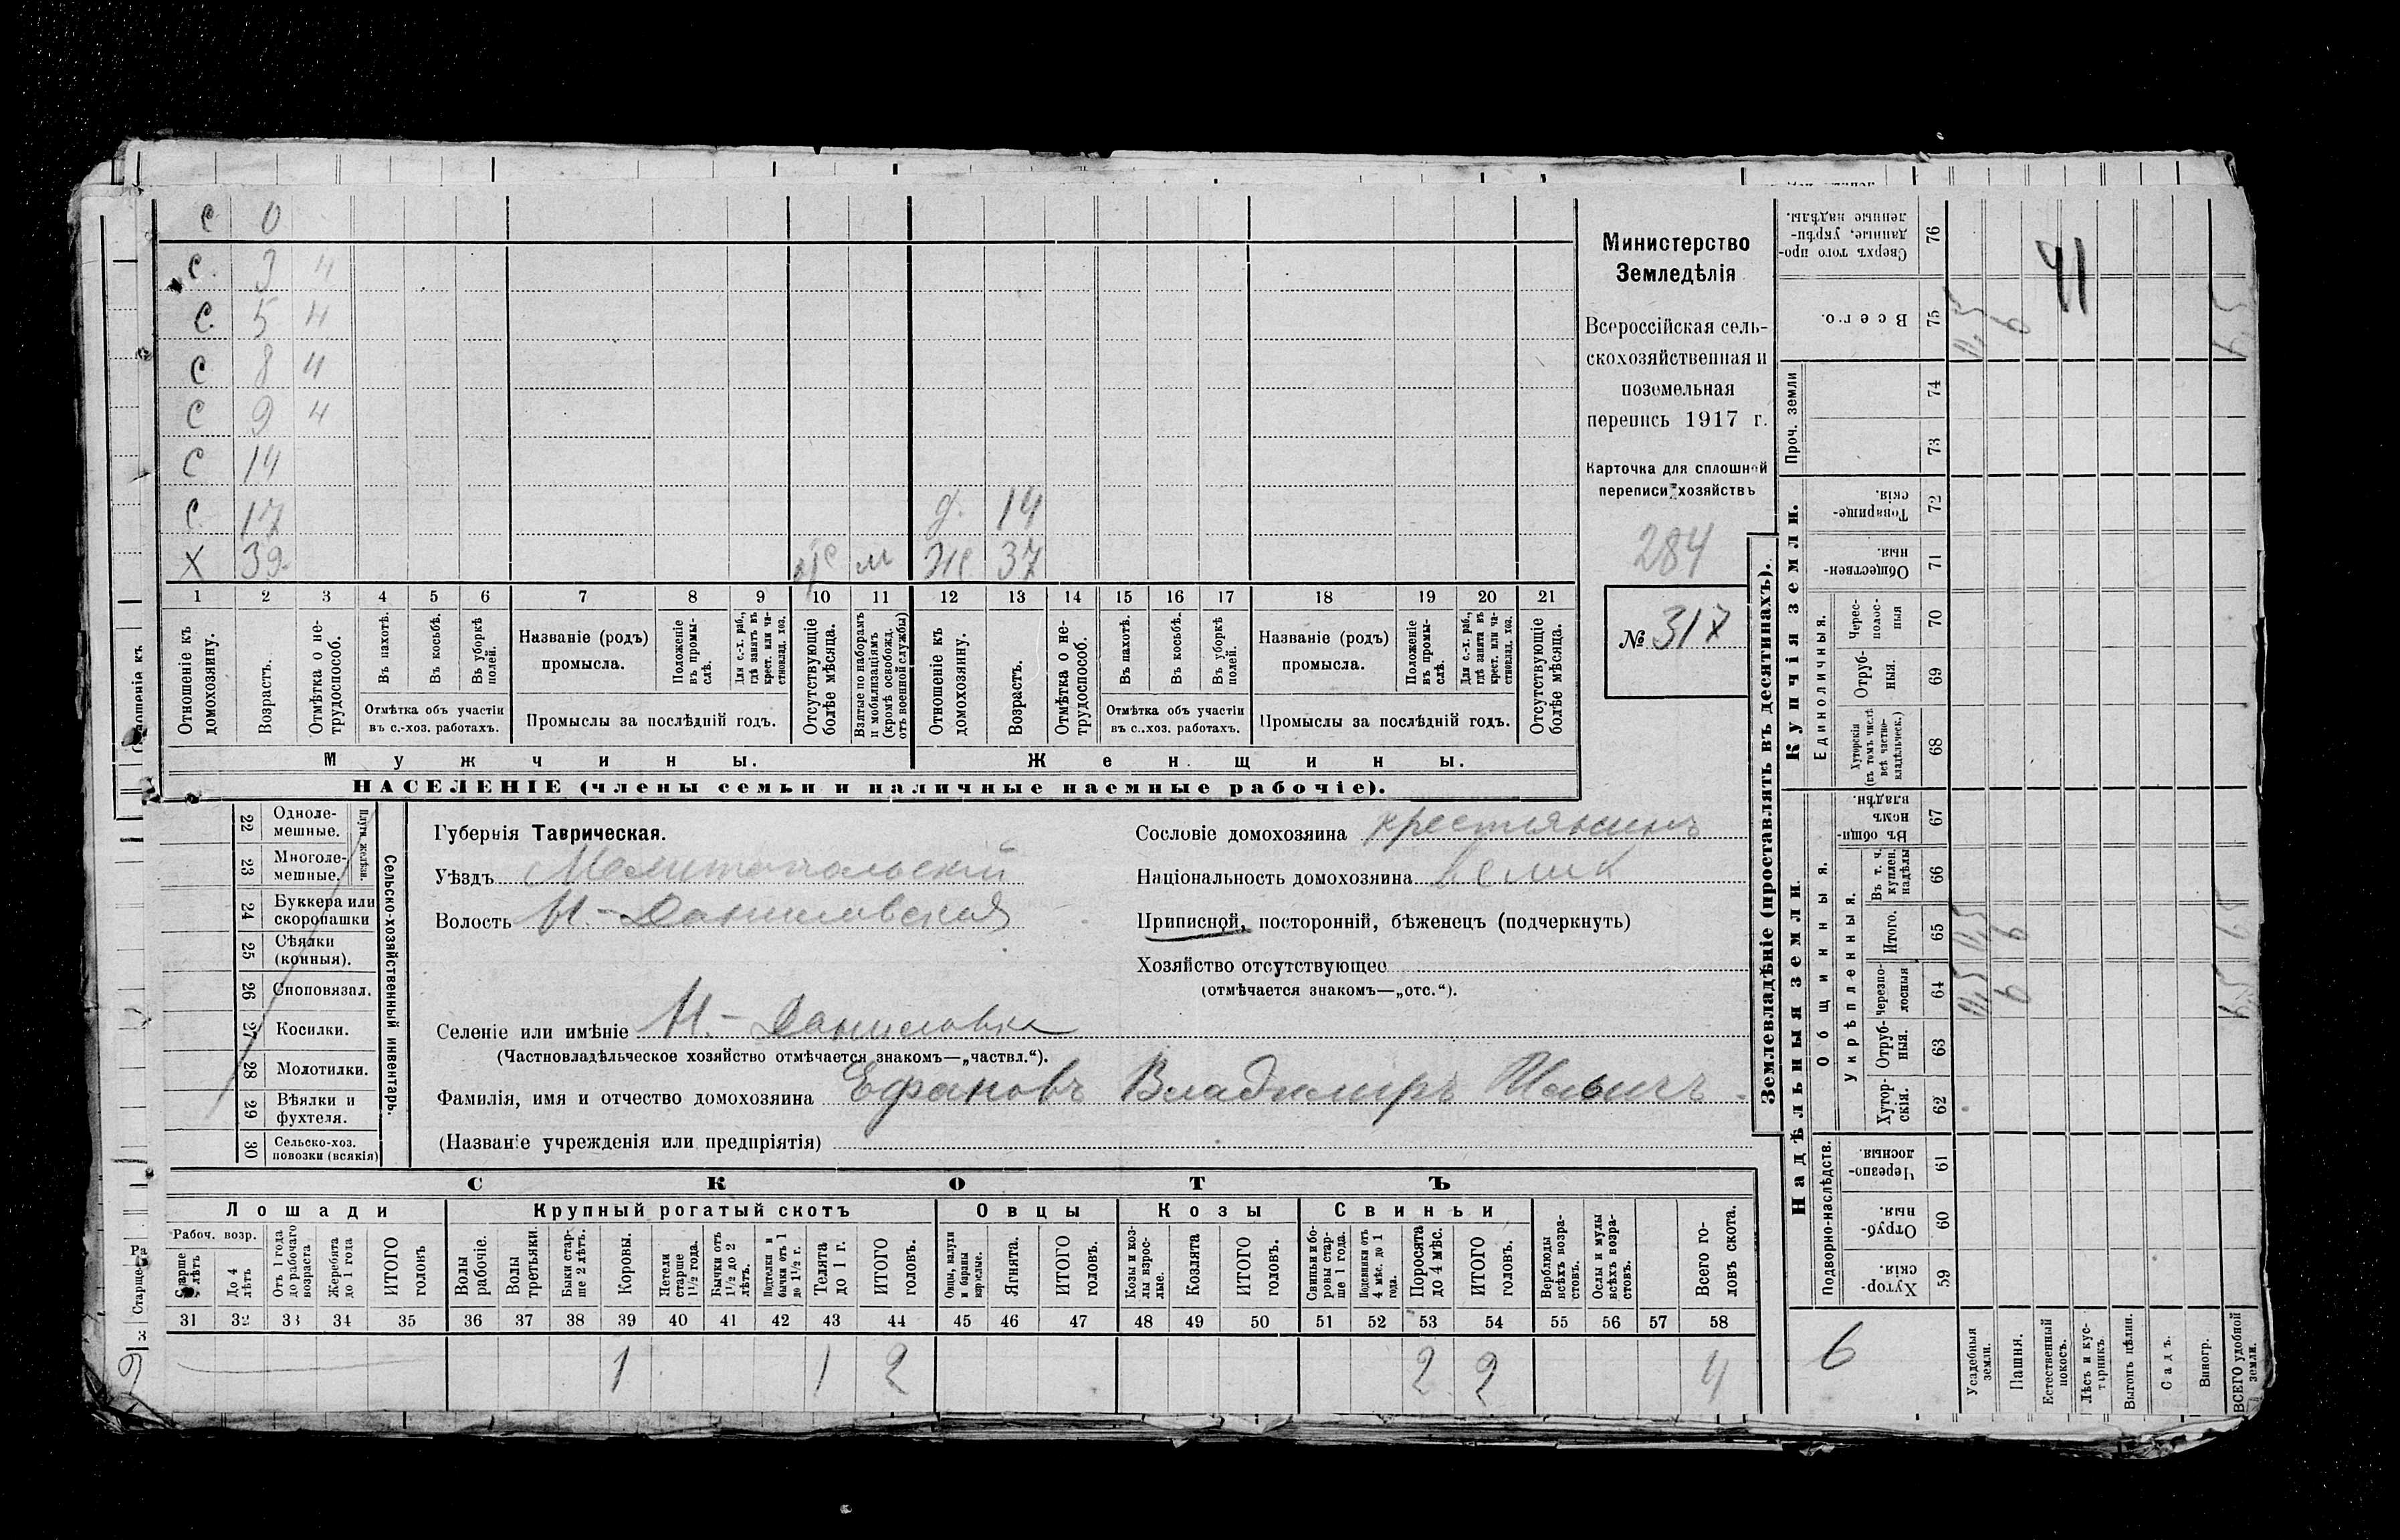 с 0
с. 3 ч
с. 5 ч
с 8 ч
с 9 ч
с 14
с. 17 д. 14
х 39. м же 37
1 2 3 4 5 6 7 8 9 10 11 12 13 14 15 16 17 18 19 20 21
Отношеніе къ домохозяину.
Возрастъ.
Отмѣтка о не-трудоспособ.
Въ пахотѣ.
Въ косьбѣ.
Въ уборкѣ полей.
Отмѣтка объ участіи въ с.-хоз. работахъ.
Названіе (родъ) промысла.
Положеніе въ промы-слѣ.
Для с.-х. раб., гдѣ занятъ въ крест. или ча-стновлад. хоз.
Промыслы за послѣдній годъ.
Отсутствующіе болѣе мѣсяца.
Взятые по наборамъ и мобилизаціямъ (кромѣ освобожд. отъ военной службы)
Отношеніе къ домохозяину.
Возрастъ.
Отмѣтка о не-трудоспособ.
Въ пахотѣ.
Въ косьбѣ.
Въ уборкѣ полей.
Отмѣтка объ участіи въ с.-хоз. работахъ.
Названіе (родъ) промысла.
Положеніе въ промы-слѣ.
Для с.-х. раб., гдѣ занята въ крест. или ча-стновлад. хоз.
Промыслы за послѣдній годъ.
Отсутствующіе болѣе мѣсяца.
Мужчины. Женщины.
НАСЕЛЕНІЕ (члены семьи и наличные наемные рабочіе).
Министерство
Земледѣлія
Всероссійская сель-
скохозяйственная и
поземельная
перепись 1917 г.
Карточка для сплошной
переписи хозяйствъ
284
№ 317
22 Одноле-мешные.
23 Многоле-мешные.
Плуги желѣзн.
24 Буккера или скоропашки
25 Сѣялки (конныя).
26 Сноповязал.
27 Косилки.
28 Молотилки.
29 Вѣялки и фухтеля.
30 Сельско-хоз. повозки (всякія)
Сельско-хозяйственный инвентарь.
Губернія Таврическая.
Уѣздъ Мелитопольскій
Волость Н.-Даниловская
Сословіе домохозяина крестьянинъ
Національность домохозяина велик
Приписной, посторонній, бѣженецъ (подчеркнуть)
Хозяйство отсутствующее
(отмѣчается знакомъ—„отс.“).
Селеніе или имѣніе Н.-Даниловка
(Частновладѣльческое хозяйство отмѣчается знакомъ—„частвл.“).
Фамилія, имя и отчество домохозяина Ефановъ Владимиръ Ильичъ.
(Названіе учрежденія или предпріятія)
СКОТЪ
Лошади Крупный рогатый скотъ Овцы Козы Свиньи
Рабоч. возр.
Старше лѣтъ
До 4 лѣтъ
Отъ 1 года до рабочаго возраста
Жеребята до 1 года
ИТОГО головъ
Волы рабочіе.
Волы третьяки.
Быки стар-ше 2 лѣтъ.
Коровы.
Нетели старше 1½ года.
Бычки отъ 1½ до 2 лѣтъ.
Подтелки и бычки отъ 1 до 1½ г.
Телята до 1 г.
ИТОГО головъ.
Овцы, валухи и бараны взрослые.
Ягнята.
ИТОГО головъ.
Козы и коз-лы взрос-лые.
Козлята
ИТОГО головъ.
Свиньи и бо-ровы стар-ше 1 года.
Подсвинки отъ 4 мѣс. до 1 года.
Поросята до 4 мѣс.
ИТОГО головъ.
Верблюды всѣхъ возра-стовъ.
Ослы и мулы всѣхъ возра-стовъ.
Всего го-ловъ скота.
31 32 33 34 35 36 37 38 39 40 41 42 43 44 45 46 47 48 49 50 51 52 53 54 55 56 57 58
1 1 2 2 2 4
Землевладѣніе (проставлять въ десятинахъ).
Купчія земли.
Надѣльныя земли.
Сверхъ того про-данные, укрѣп-ленные надѣлы. 76
Всего. 75
Проч. земли 74 73
Товарище-скія. 72
Обществен-ныя. 71
Единоличныя.
Черес-полос-ныя 70
Отруб-ныя. 69
Хуторскія (въ томъ числѣ всѣ частно-владѣльческ.) 68
Общинныя.
Въ общи-номъ владѣн. 67
Укрѣпленныя.
Въ т. ч. куплен. надѣлы 66
Итого. 65
черезпо-лосныя 64
Отруб-ныя. 63
Хутор-скія. 62
Подворно-наслѣдств.
Черезпо-лосныя 61
Отруб-ныя. 60
Хутор-скія. 59
41
6
Усадебныя земли.
Пашня.
Естественный покосъ.
Лѣсъ и кус-тарникъ.
Выгонъ цѣлин.
Садъ.
Виногр.
ВСЕГО удобной земли.